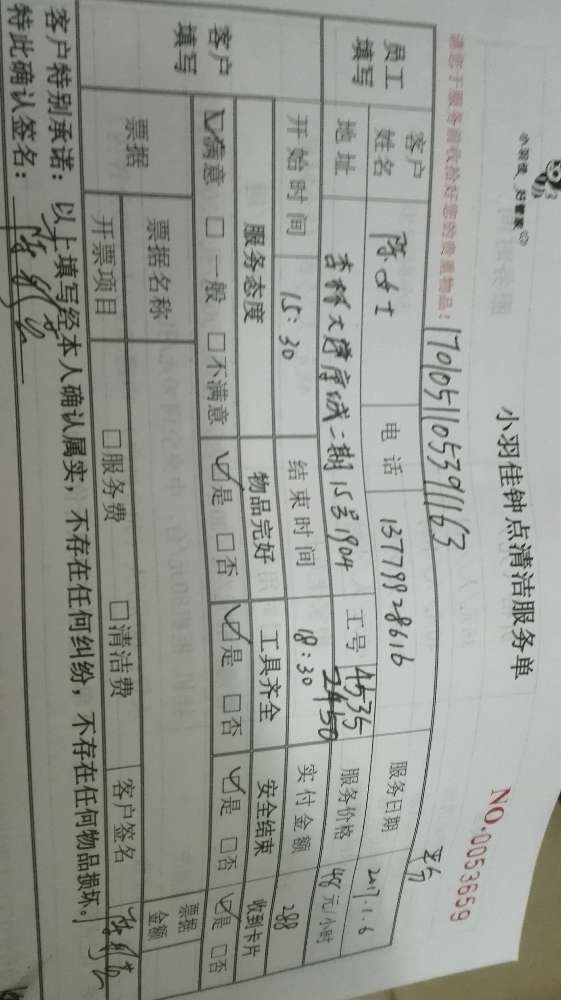 小羽佳 好管家
小羽佳钟点清洁服务单
NO.0053659
请您于服务前收拾好您的贵重物品!
17010511053911163
员工填写
客户姓名 陈女士 电话 13779928616 服务日期 2017.1.6
地址 杏林大学康城二期15号1904 工号 A535 2450 服务价格 48元/小时
开始时间 15:30 结束时间 18:30 实付金额 288
客户填写
服务态度 物品完好 工具齐全 安全结束 收到卡片
☑满意 □一般 □不满意 ☑是 □否 ☑是 □否 ☑是 □否 ☑是 □否
票据 票据名称 票据金额
开票项目 □服务费 □清洁费 客户签名
客户特别承诺:以上填写经本人确认属实,不存在任何纠纷,不存在任何物品损坏。
特此确认签名: